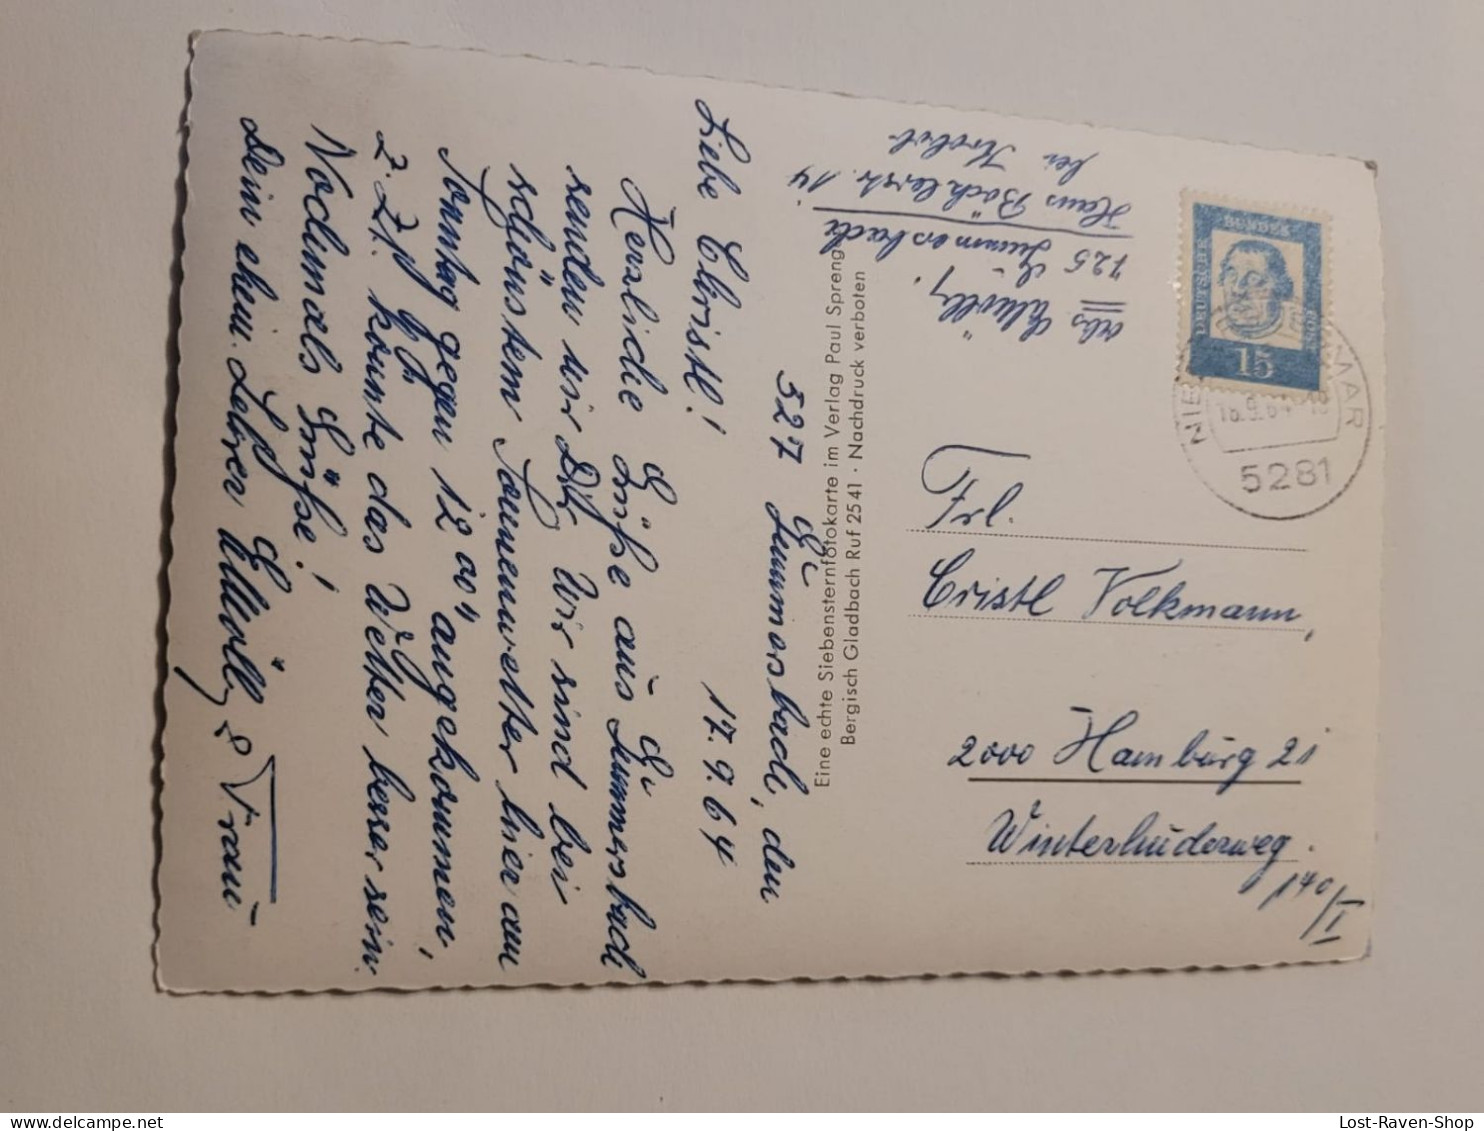 527 Gummersbach, den
17.9.64
Liebe Christl!
Herzliche Grüße aus Gummersbach
senden wir Dir. Wir sind bei
schönstem Sonnenwetter hier am
Sonntag gegen 12°° angekommen,
z. Zt. könnte das Wetter besser sein.
Nochmals Grüße!
Dein ehem. Lehrer
& Frau
Eine echte Siebensternfotokarte im Verlag Paul Spreng
Bergisch Gladbach Ruf 2541 · Nachdruck verboten
abs
Gummersbach
14
bei
DEUTSCHE
BUNDES
POST
15
5281
Frl.
Cristl Volkmann,
2000 Hamburg 21
Winterhuderweg
140/I
Lost-Raven-Shop